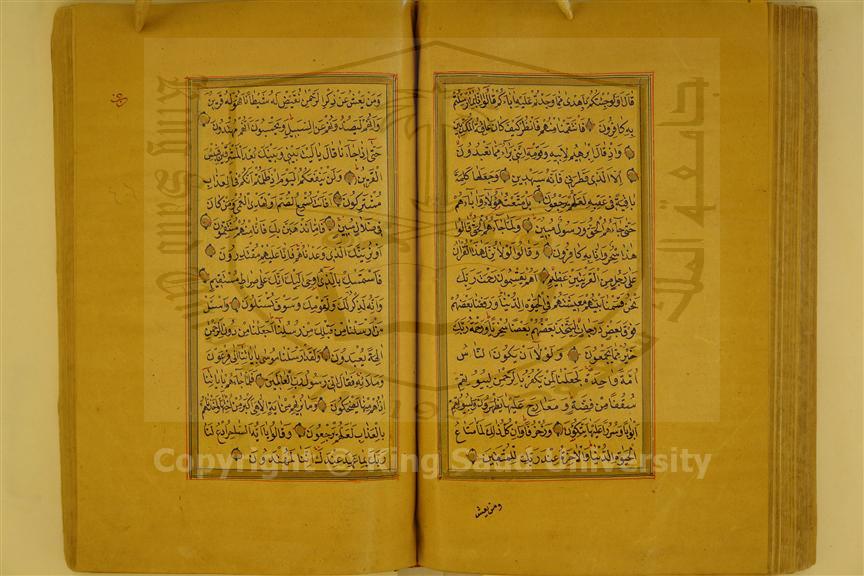 قال ولو جئتكم باهدى مما وجدتم عليه اباءكم قالوا انا بما ارسلتم
به كافرون فانتقمنا منهم فانظر كيف كان عاقبة المكذبين
واذ قال ابرهيم لابيه وقومه اننى براء مما تعبدون
الا الذى فطرنى فانه سيهدين وجعلها كلمة
باقية فى عقبه لعلهم يرجعون بل متعت هؤلاء واباءهم
حتى جاءهم الحق ورسول مبين ولما جاءهم الحق قالوا
هذا سحر وانا به كافرون وقالوا لولا نزل هذا القران
على رجل من القريتين عظيم اهم يقسمون رحمت ربك
نحن قسمنا بينهم معيشتهم فى الحيوة الدنيا ورفعنا بعضهم
فوق بعض درجات ليتخذ بعضهم بعضا سخريا ورحمة ربك
خير مما يجمعون ولولا ان يكون الناس
امة واحدة لجعلنا لمن يكفر بالرحمن لبيوتهم
سقفا من فضة ومعارج عليها يظهرون ولبيوتهم
ابوابا وسررا عليها يتكؤن وزخرفا وان كل ذلك لما متاع
الحيوة الدنيا والاخرة عند ربك للمتقين
ومن يعش
ومن يعش عن ذكر الرحمن نقيض له شيطانا فهو له قرين
وانهم ليصدونهم عن السبيل ويحسبون انهم مهتدون
حتى اذا جاءنا قال ياليت بينى وبينك بعد المشرقين فبئس
القرين ولن ينفعكم اليوم اذ ظلمتم انكم فى العذاب
مشتركون افانت تسمع الصم او تهدى العمى ومن كان
فى ضلال مبين فاما نذهبن بك فانا منهم منتقمون
او نرينك الذى وعدناهم فانا عليهم مقتدرون
فاستمسك بالذى اوحى اليك انك على صراط مستقيم
وانه لذكر لك ولقومك وسوف تسئلون وسئل
من ارسلنا من قبلك من رسلنا اجعلنا من دون الرحمن
الهة يعبدون ولقد ارسلنا موسى باياتنا الى فرعون
وملائه فقال انى رسول رب العالمين فلما جاءهم باياتنا
اذا هم منها يضحكون وما نريهم من اية الا هى اكبر من اختها واخذناهم
بالعذاب لعلهم يرجعون وقالوا يا ايه الساحر ادع لنا
ربك بما عهد عندك اننا لمهتدون
جامعة الملك
King Saud University
Copyright © King Saud University